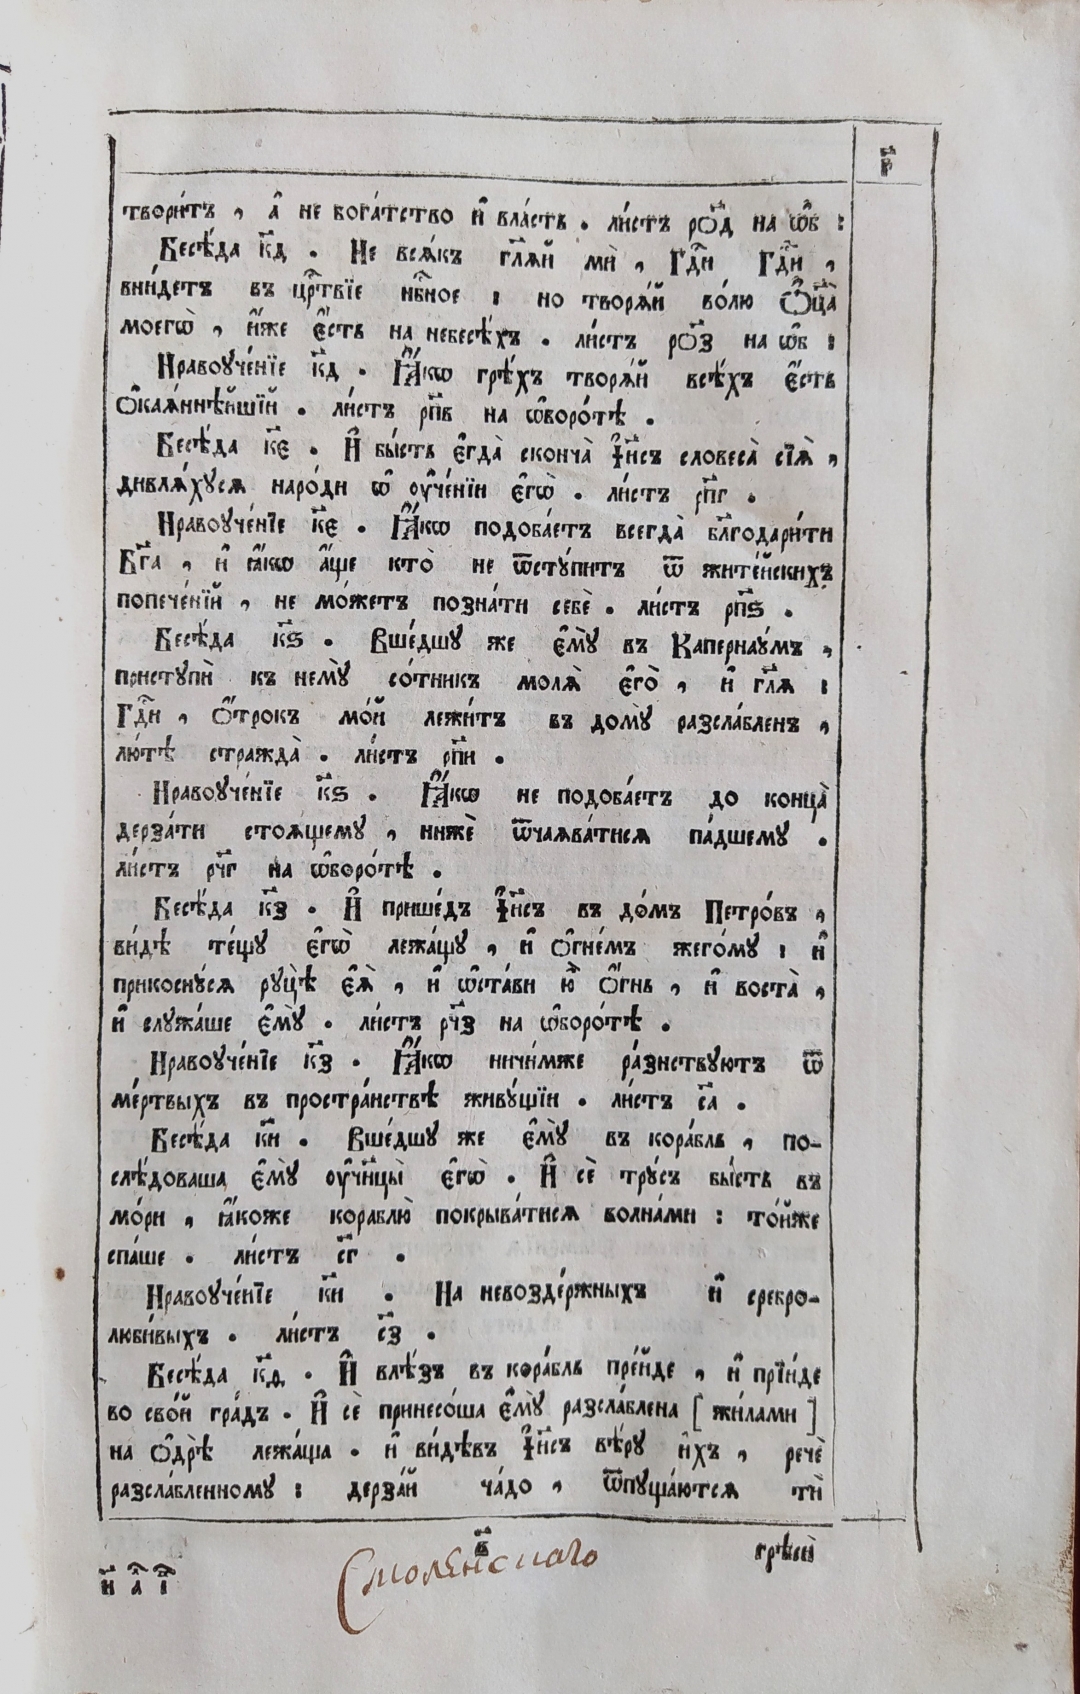 г҃
твори́тъ , а҆ не бога́тство и҆ вла́сть . ли́стъ ро҃д на ѡ҆б :
Бесѣ́да к҃д . Не всѧ́къ гл҃ѧй мѝ , Гдⷭ҇и Гдⷭ҇и ,
вни́детъ въ црⷭ҇твїе нбⷭ҇ное : но творѧ́й во́лю Ѻ҆ц҃а̀
моегѡ̀ , и҆́же є҆́сть на небесѣ́хъ . ли́стъ ро҃з на ѡ҆б :
Нравоꙋче́нїе к҃д . Ꙗ҆́кѡ грѣ́хъ творѧ́й всѣ́хъ є҆́сть
ѻ҆каѧ́ннѣйшїй . ли́стъ рп҃в на ѡ҆боро́тѣ .
Бесѣ́да к҃є . И҆ бы́сть є҆гда̀ сконча̀ І҆и҃съ словеса̀ сїѧ̀ ,
дивлѧ́хꙋсѧ наро́ди ѡ҆ ᲂу҆че́нїи є҆гѡ̀ . ли́стъ рп҃г .
Нравоꙋче́нїе к҃є . Ꙗ҆́кѡ подоба́етъ всегда̀ бл҃годари́ти
Бг҃а , и҆ ꙗ҆́кѡ а҆́ще кто̀ не ѿстꙋ́питъ ѿ жите́йскихъ
попече́нїй , не мо́жетъ позна́ти себѐ . ли́стъ рп҃ѕ .
Бесѣ́да к҃ѕ . Вше́дшꙋ же є҆мꙋ̀ въ Капернаꙋ́мъ ,
пристꙋпѝ къ немꙋ̀ со́тникъ молѧ̀ є҆го̀ , и҆ гл҃ѧ :
Гдⷭ҇и , ѻ҆́трокъ мо́й лежи́тъ въ домꙋ̀ разсла́бленъ ,
лю́тѣ стражда̀ . ли́стъ рп҃и .
Нравоꙋче́нїе к҃ѕ . Ꙗ҆́кѡ не подоба́етъ до конца̀
дерза́ти стоѧ́щемꙋ , нижѐ ѿчаѧва́тисѧ па́дшемꙋ .
ли́стъ рч҃г на ѡ҆боро́тѣ .
Бесѣ́да к҃з . И҆ прише́дъ І҆и҃съ въ до́мъ Петро́въ ,
ви́дѣ те́щꙋ є҆гѡ̀ лежа́щꙋ , и҆ ѻ҆гне́мъ жего́мꙋ : и҆
прикоснꙋ́сѧ рꙋцѣ̀ є҆ѧ̀ , и҆ ѡ҆ста́ви ю҆̀ ѻ҆́гнь , и҆ воста̀ ,
и҆ слꙋжа́ше є҆мꙋ̀ . ли́стъ рч҃з на ѡ҆боро́тѣ .
Нравоꙋче́нїе к҃з . Ꙗ҆́кѡ ничи́мже ра́знствꙋютъ ѿ
ме́ртвыхъ въ простра́нствѣ живꙋ́щїи . ли́стъ с҃а .
Бесѣ́да к҃и . Вше́дшꙋ же є҆мꙋ̀ въ кора́бль , по-
слѣ́доваша є҆мꙋ̀ ᲂу҆чн҃цы̀ є҆гѡ̀ . И҆ сѐ трꙋ́съ бы́сть въ
мо́ри , ꙗ҆́коже кораблю̀ покрыва́тисѧ волна́ми : то́йже
спа́ше . ли́стъ с҃г .
Нравоꙋче́нїе к҃и . На невозде́ржныхъ и҆ сребро-
люби́выхъ . ли́стъ с҃з .
Бесѣ́да к҃ѳ . И҆ влѣ́зъ въ кора́бль пре́йде , и҆ прїи́де
во сво́й гра́дъ . И҆ сѐ принесо́ша є҆мꙋ̀ разсла́блена [ жи́лами ]
на ѻ҆дрѣ̀ лежа́ща . и҆ ви́дѣвъ І҆и҃съ вѣ́рꙋ и҆́хъ , речѐ
разсла́бленномꙋ : дерза́й ча́до , ѿпꙋща́ютсѧ тѝ
в҃ грѣсѝ
Смоленскаго